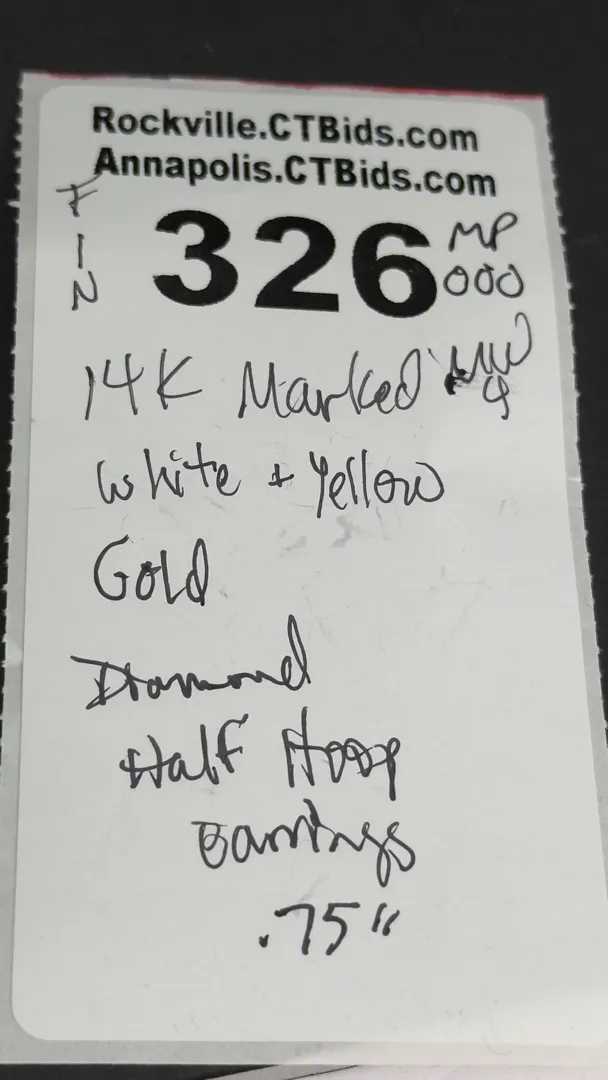 Rockville.CTBids.com
Annapolis.CTBids.com
FIN
326
MP
000
14K Marked
White + Yellow
Gold
Diamond
Half Hoop
Earrings
.75"